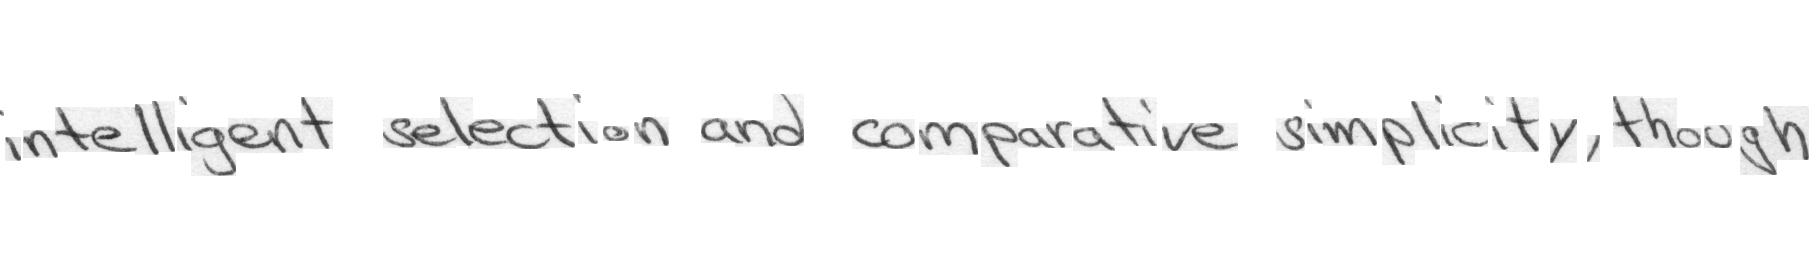 intelligent selection and comparative simplicity, though